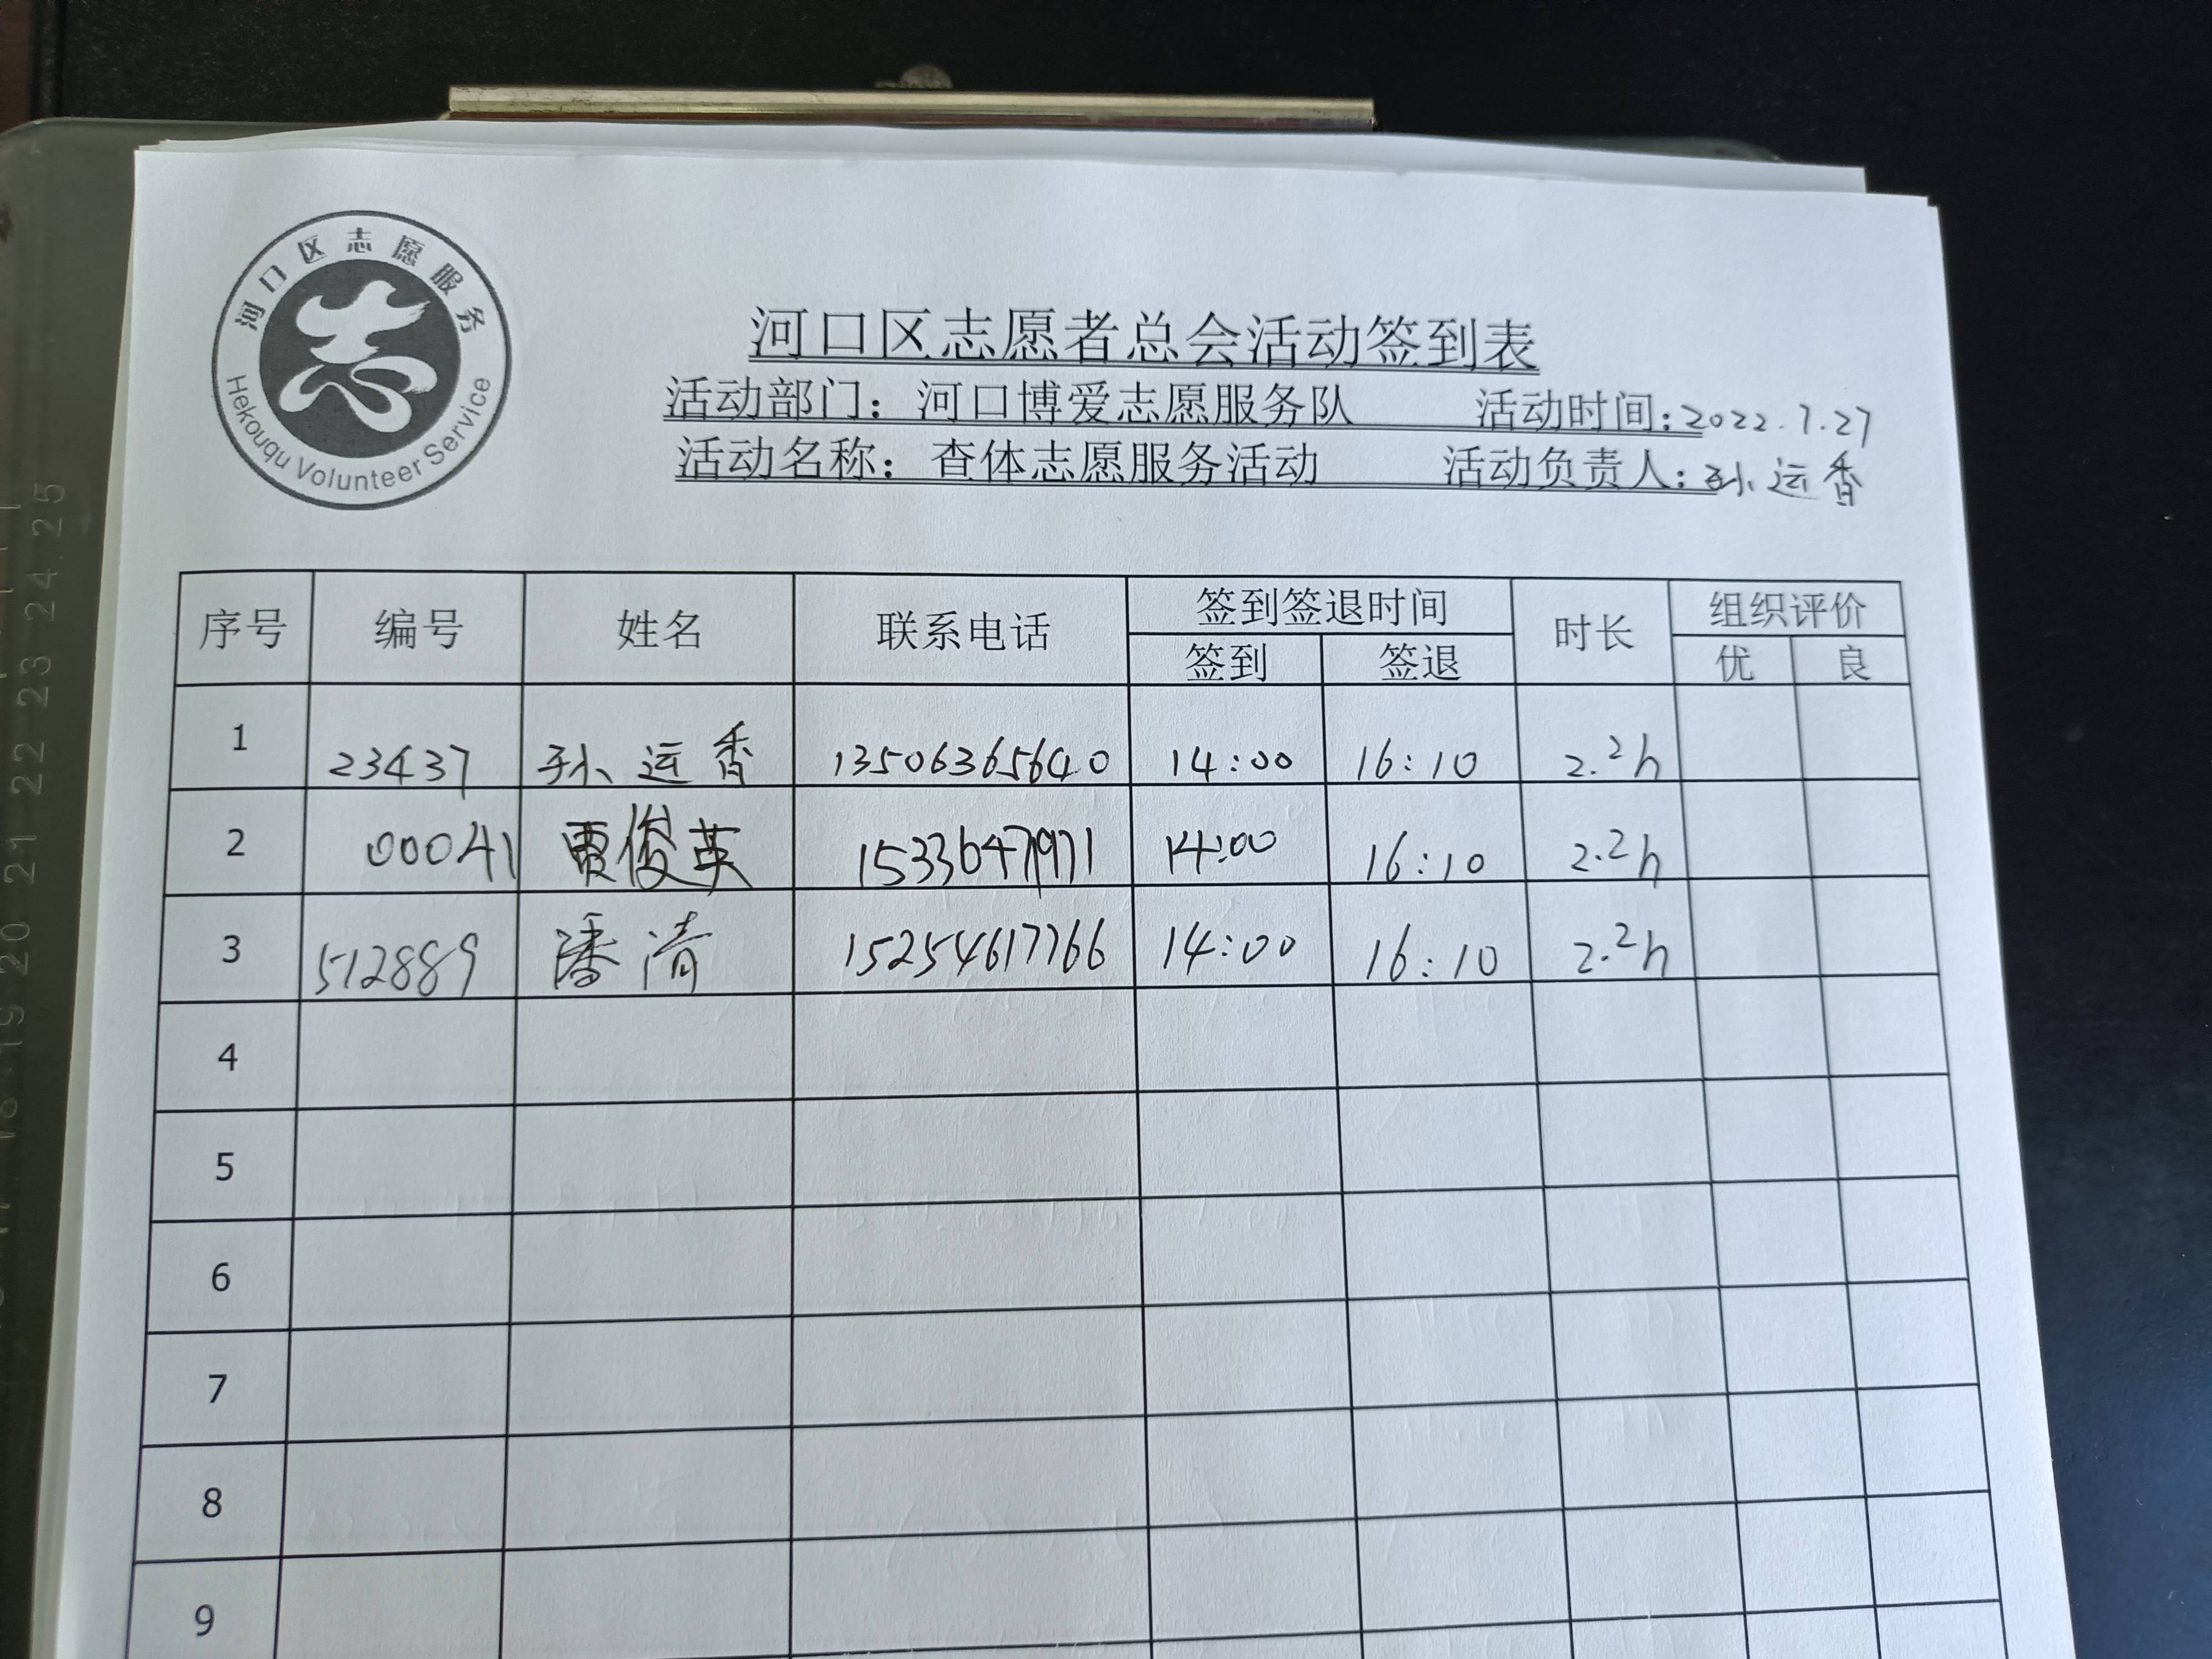 河口区志愿服务
志
Hekouqu Volunteer Service
河口区志愿者总会活动签到表
活动部门：河口博爱志愿服务队 活动时间：2022.7.27
活动名称：查体志愿服务活动 活动负责人：孙运香
序号 编号 姓名 联系电话 签到签退时间 时长 组织评价
签到 签退 优 良
1 23437 孙运香 13506365640 14:00 16:10 2.2h
2 00041 贾俊英 15336471971 14:00 16:10 2.2h
3 512889 潘清 15254617766 14:00 16:10 2.2h
4
5
6
7
8
9
19 20 21 22 23 24 25